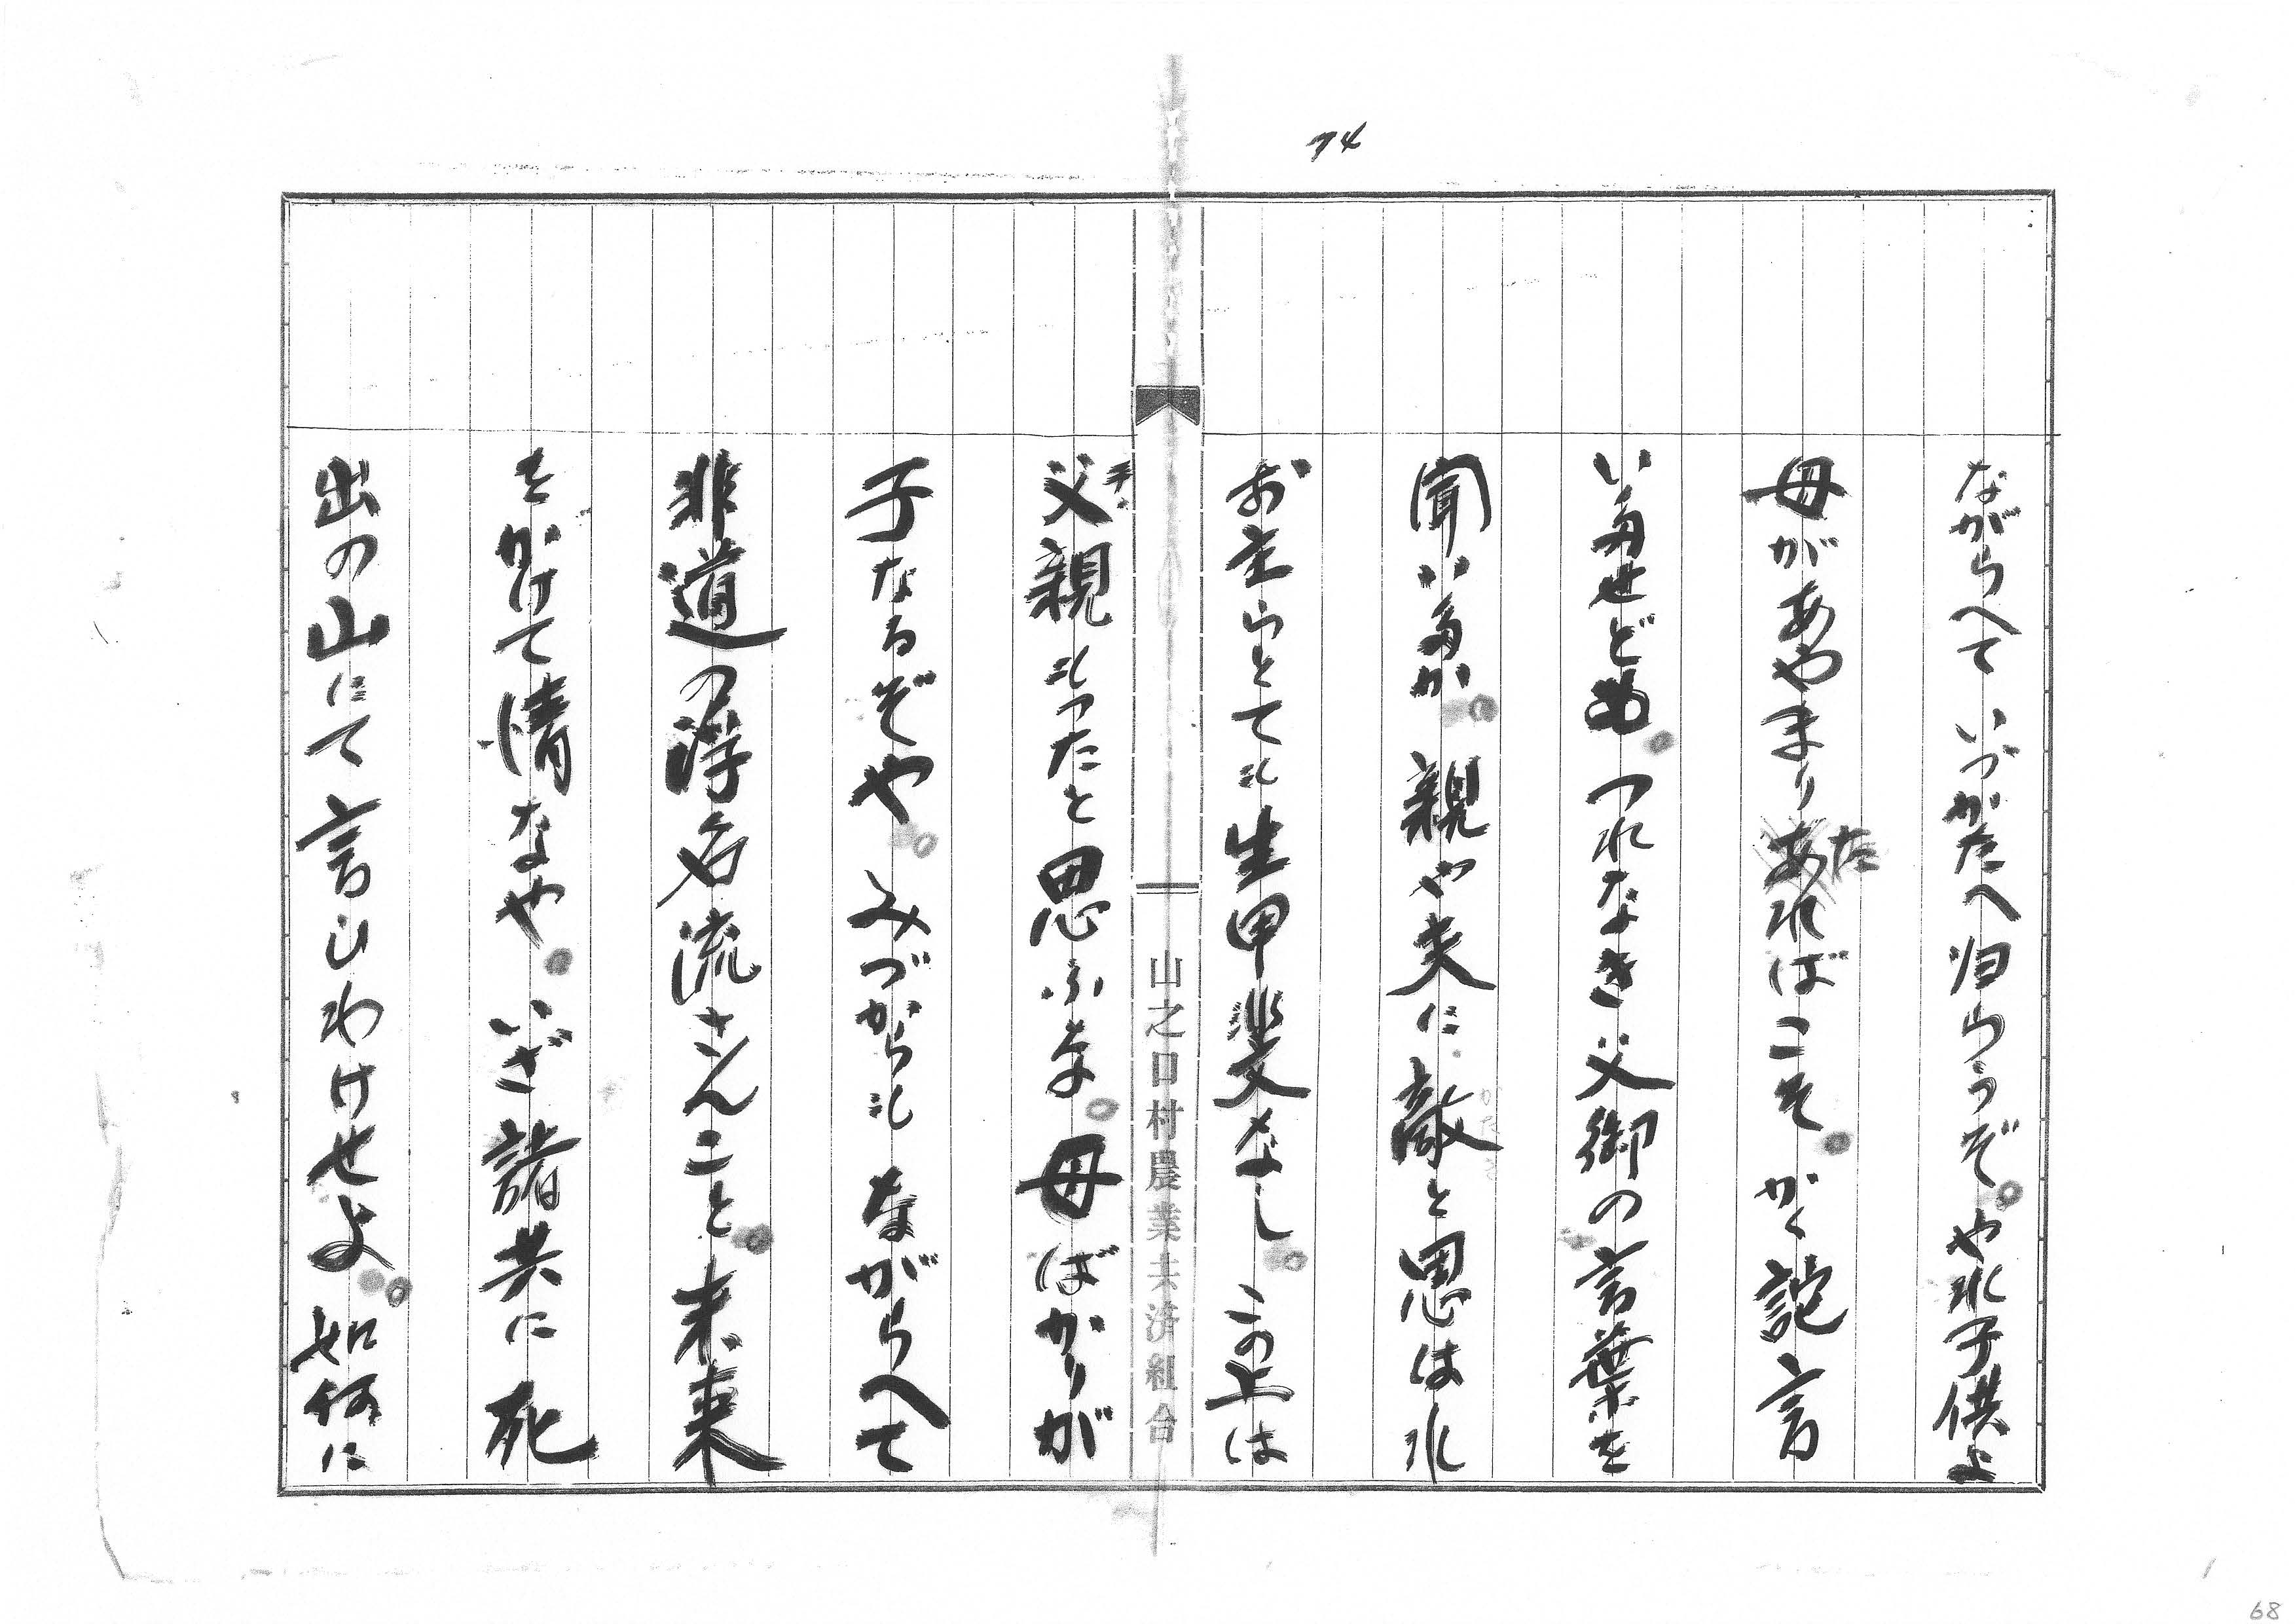 74
ながらへて いづかたへ帰らうぞ。やれ子供よ
母があやまりあれたればこそ。かく詫言
いたせども。つれなき父御の言葉を
聞いたか。親や夫に敵と思はれ
お主らとても生甲斐なし。この上は
父親もつたと思ふな。母ばかりが
子なるぞや。みづからも ながらへて
非道の浮名流さんこと。未来
をかけて情なや。いざ諸共に 死
出の山にて 言ひわけせよ。如何に
山之口村農業共済組合
68